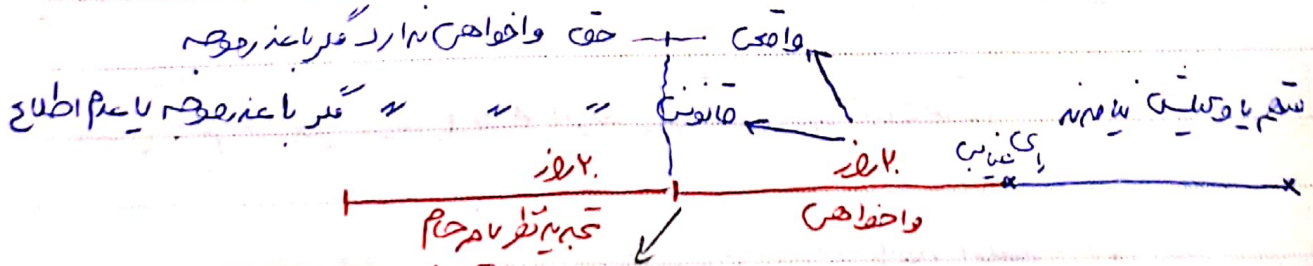 واقعی — حق واخواهی ندارد مگر با عذر موجه
متهم یا وکیلش نیامدند
قانونی " " " مگر با عذر موجه یا عدم اطلاع
رای غیابی
۲۰ روز
۲۰ روز
واخواهی
تجدیدنظر یا فرجام